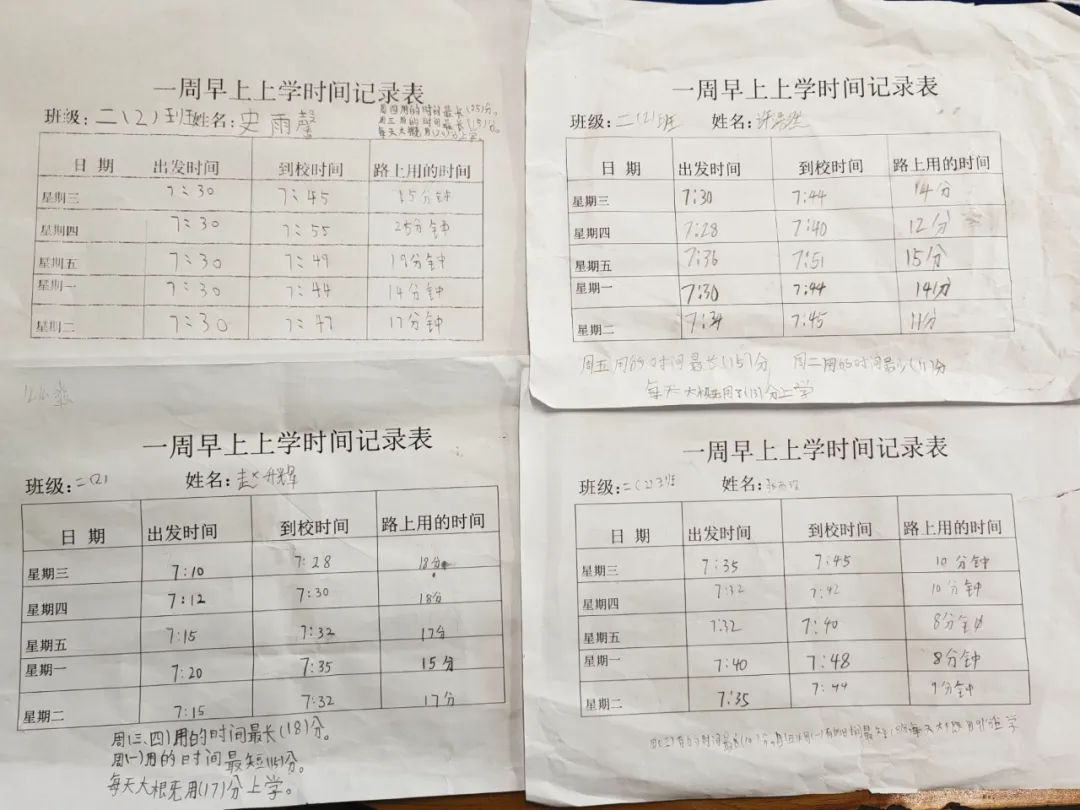 一周早上上学时间记录表
班级:二(2)班姓名:史雨馨
周四用的时间最长(25)分。
周三用的时间最(15)分。
每天大概用()分上学
日 期 出发时间 到校时间 路上用的时间
星期三 7:30 7:45 15分钟
星期四 7:30 7:55 25分钟
星期五 7:30 7:49 19分钟
星期一 7:30 7:44 14分钟
星期二 7:30 7:47 17分钟
一周早上上学时间记录表
班级:二(2)班 姓名:
日 期 出发时间 到校时间 路上用的时间
星期三 7:30 7:44 14分
星期四 7:28 7:40 12分
星期五 7:36 7:51 15分
星期一 7:30 7:44 14分
星期二 7:34 7:45 11分
周五用的时间最长(15)分 周二用的时间最少(11)分
每天大概用了(13)分上学
一周早上上学时间记录表
班级:二(2) 姓名:赵升辉
日 期 出发时间 到校时间 路上用的时间
星期三 7:10 7:28 18分
星期四 7:12 7:30 18分
星期五 7:15 7:32 17分
星期一 7:20 7:35 15分
星期二 7:15 7:32 17分
周(三、四)用的时间最长(18)分。
周(一)用的时间最短(15)分。
每天大根无用(17)分上学。
一周早上上学时间记录表
班级:二(2)班 姓名:
日 期 出发时间 到校时间 路上用的时间
星期三 7:35 7:45 10分钟
星期四 7:32 7:42 10分钟
星期五 7:32 7:40 8分钟
星期一 7:40 7:48 8分钟
星期二 7:35 7:44 9分钟